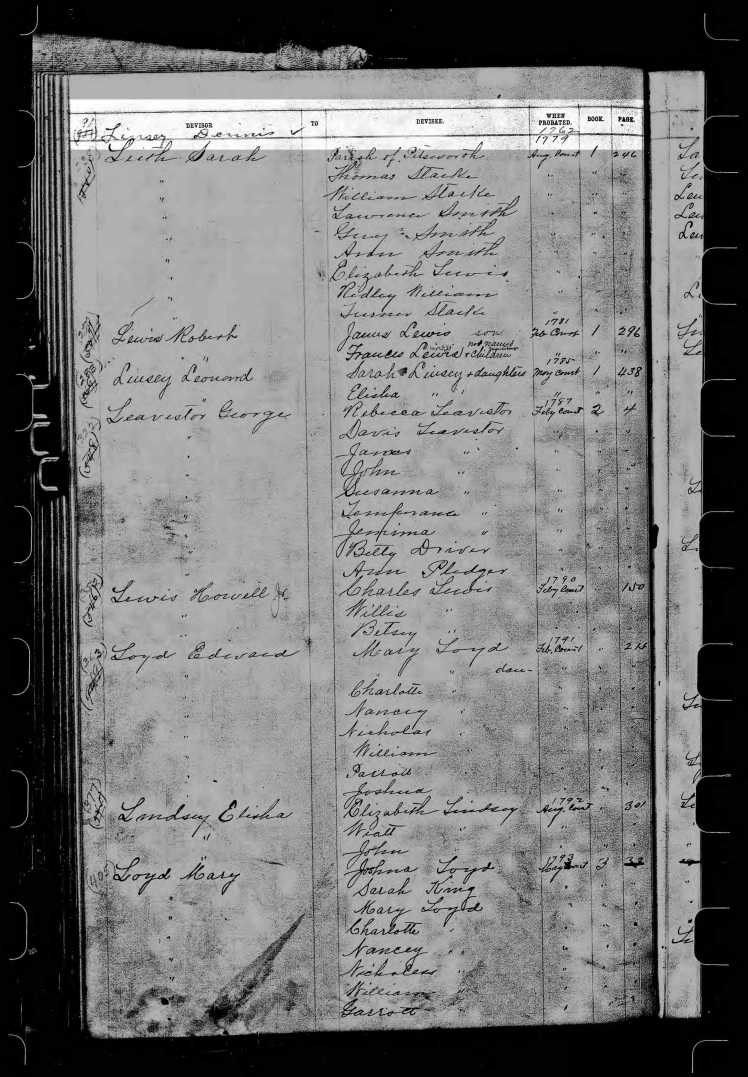 DEVISOR TO DEVISEE. WHEN PROBATED. BOOK. PAGE.
Linsey Dennis ✓ 1762
1779
Leith Sarah Parish of Aug. Court 1 246
" Thomas Starke " " "
" William Starke " " "
" Lawrence Smith " " "
" Smith " " "
" Ann Smith " " "
" Elizabeth Lewis " " "
" Ridley William " " "
" Turner Starke " " "
1781
Lewis Robert James Lewis son Feb Court 1 296
" Francis Lewis & children not named " " "
1785
Linsey Leonard Sarah Linsey & daughters May Court 1 438
" Elisha " " " " "
1787
Leavestor George Rebecca Leavestor Feby Court 2 4
" Davis Leavestor " " "
" James " " " "
" John " " " "
" Susanna " " " "
" Temperance " " " "
" Jemima " " " "
" Betty Driver " " "
" Ann Pledger " " "
1790
Lewis Howell Jr Charles Lewis Feby Court " 150
" Willis " " " "
" Betsey " " " "
1791
Loyd Edward Mary Loyd Feb. Court " 214
" " " dau- " " "
" Charlotte " " " "
" Nancey " " " "
" Nicholas " " " "
" William " " " "
" Parrott " " " "
" Joshua " " " "
1792
Lindsey Elisha Elizabeth Lindsey Aug. Court " 301
" Wiatt " " " "
" John " " " "
1793
Loyd Mary Joshua Loyd May Court 3 32
" Sarah King " " "
" Mary Loyd " " "
" Charlotte " " " "
" Nancey " " " "
" Nicholess " " " "
" William " " " "
" Garrott " " " "